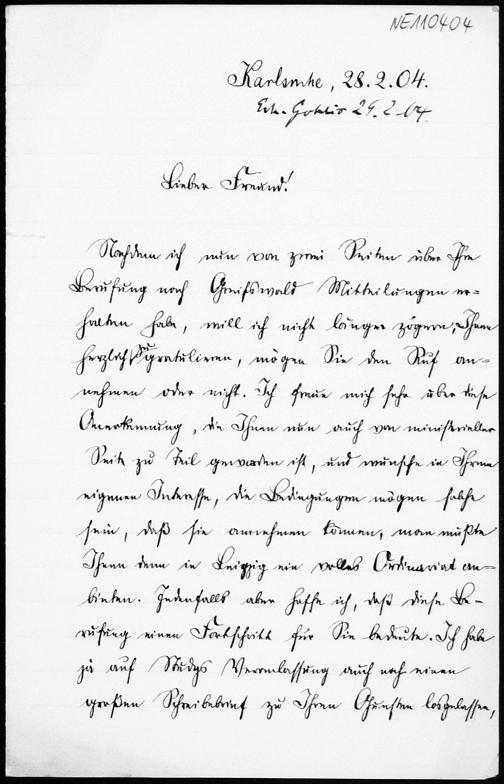 NE110404
Karlsruhe, 28.2.04.
29.2.04.
Lieber Freund!
Nachdem ich nun von zwei Seiten über Ihre
Berufung nach Greifswald Mitteilungen er-
halten habe, will ich nicht länger zögern, Ihnen
herzlich zu gratulieren, mögen Sie den Ruf an-
nehmen oder nicht. Ich freue mich sehr über diese
Anerkennung, die Ihnen nun auch von ministerieller
Seite zu Teil geworden ist, und wünsche in Ihrem
eigenen Interesse, die Bedingungen mögen solche
sein, daß sie annehmen können, man müßte
Ihnen denn in Leipzig ein volles Ordinariat an-
bieten. Jedenfalls aber hoffe ich, daß diese Be-
rufung einen Fortschritt für Sie bedeute. Ich habe
ja auf Studys Veranlassung auch noch einen
großen Schreibebrief zu Ihren Gunsten losgelassen,